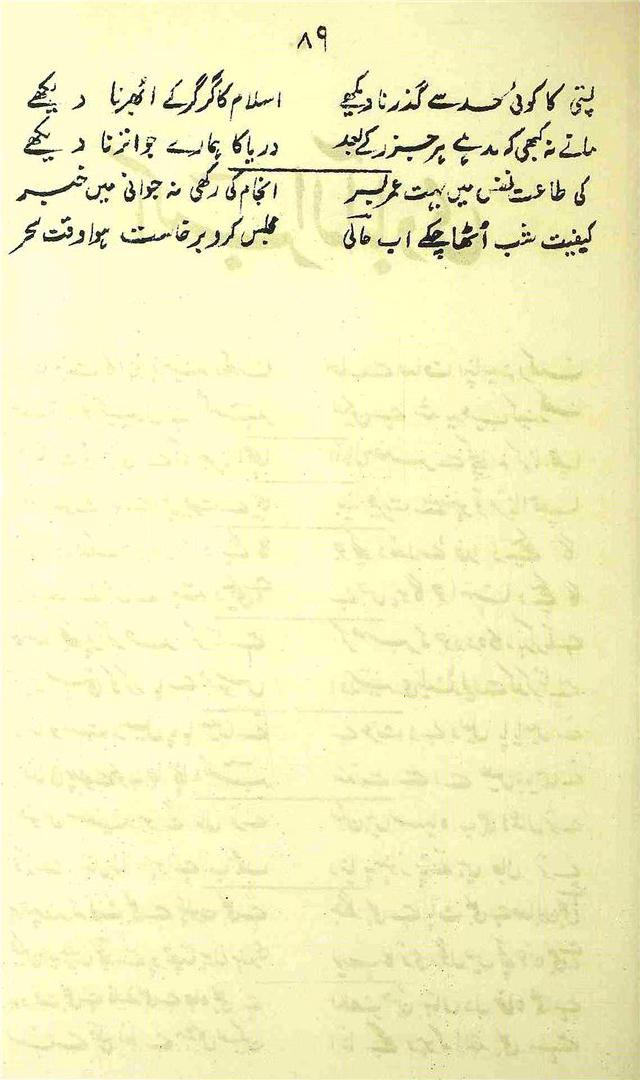 ۸۹
پستی کا کوئی حد سے گذرنا دیکھے اسلام کا گر گر کے ابھرنا دیکھے
مانے نہ کبھی کہ مد ہے ہر جزر کے بعد دریا کا ہمارے جو اترنا دیکھے
کی طاعت نفس میں بہت عمر بسر انجام کی رکھی نہ جوانی میں خبر
کیفیت شب اُٹھا چکے اب حالی مجلس کرو برخاست ہوا وقت سحر